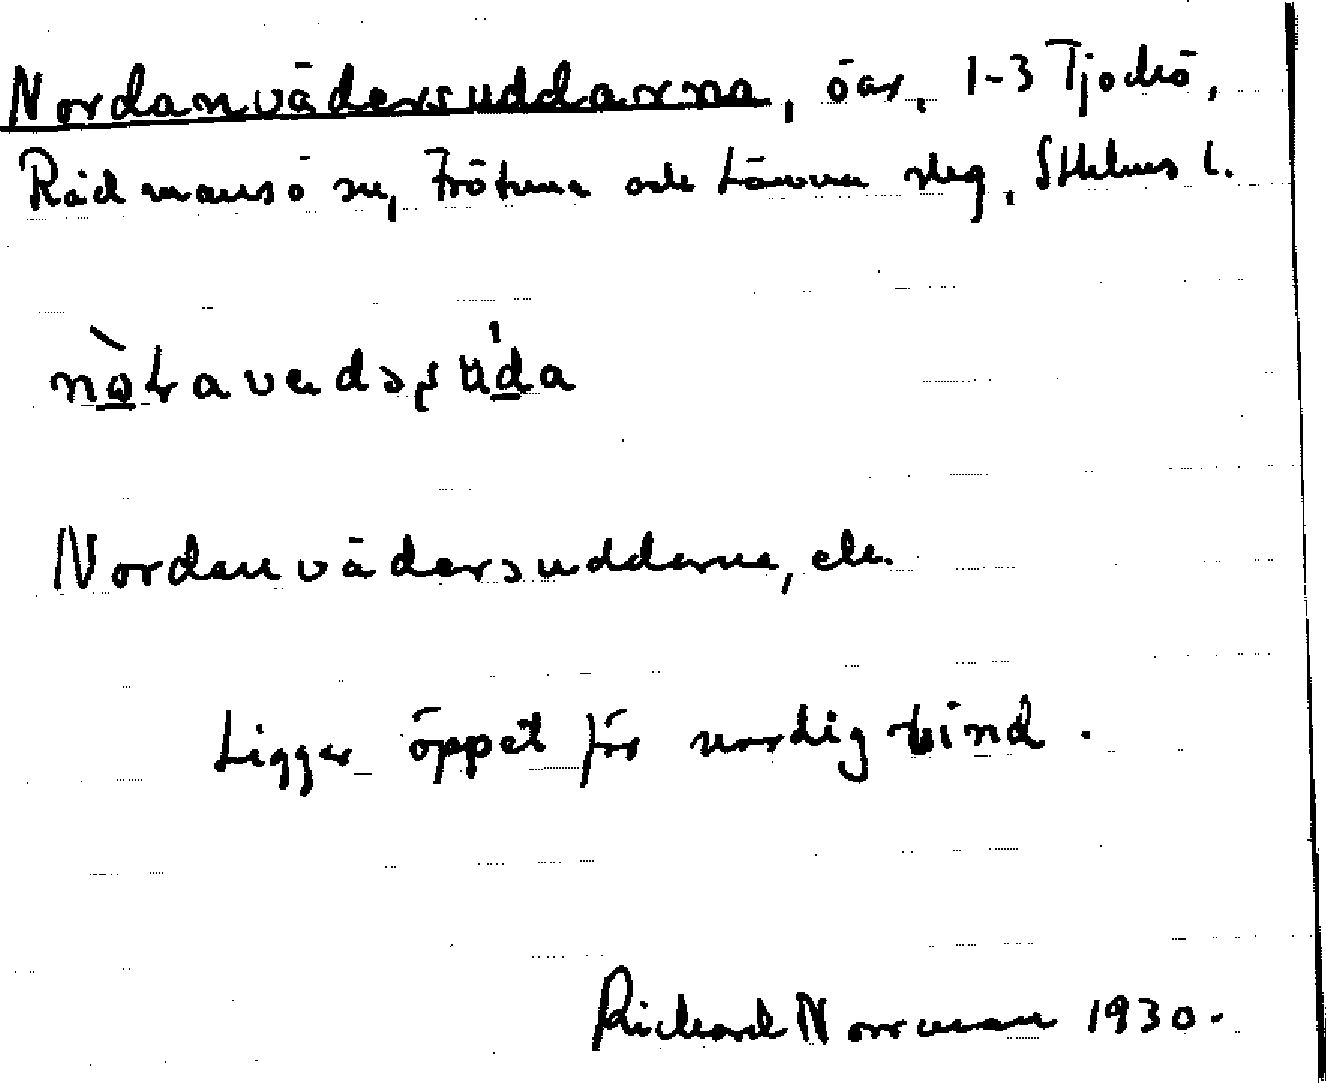 Nordanvädersuddarna, öar, 1-3 Tjockö,
Rådmansö sn, Frötuna och Länna skg, Sthlms l.
Nordanvädersuddarna, ek.
Ligger öppet för nordig vind.
Richard Norrman 1930.